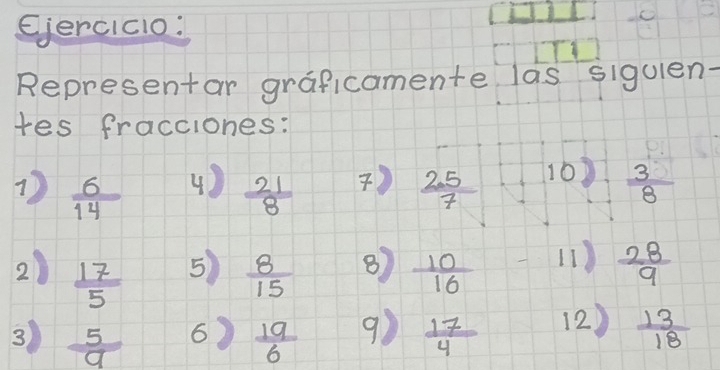 Ejercicio:
Representar gráficamente las siguien-
tes fracciones:
1) 6/14 4) 21/8 7) 25/7 10) 3/8
2) 17/5 5) 8/15 8) 10/16 11) 28/9
3) 5/9 6) 19/6 9) 17/4 12) 13/18